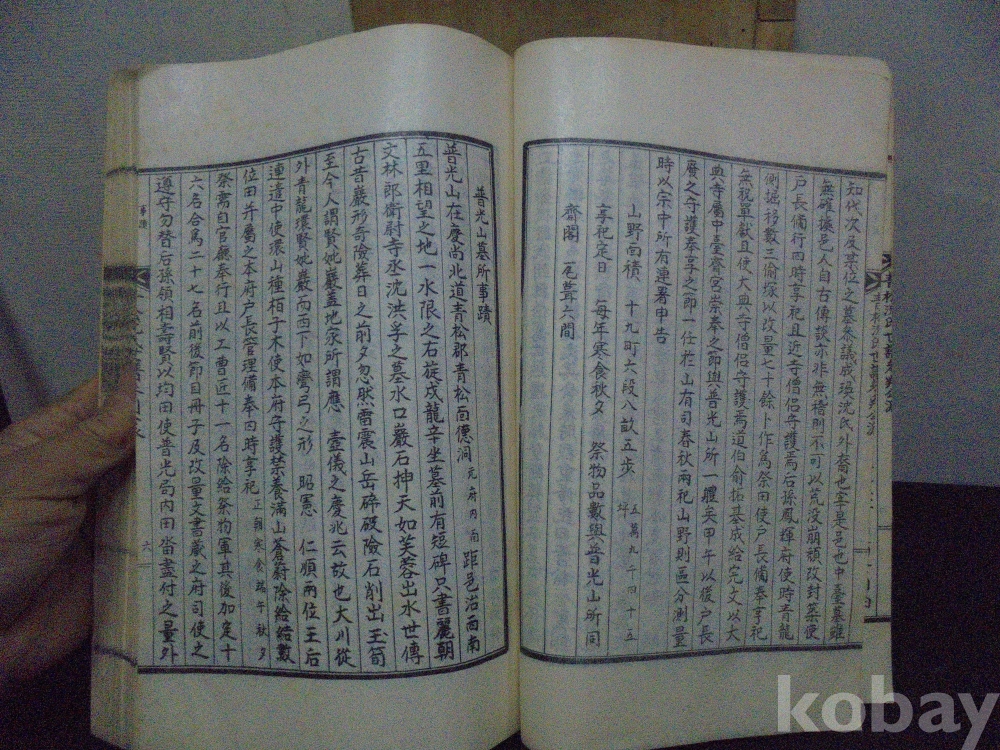 知代次及某位之墓參議成瑛沈氏外裔也宰是邑也中臺墓雖
無確據邑人自古傳說亦非無稽則不可以荒没崩頹改封莱使
戶長備行四時享祀且近寺僧侶守護焉后孫鳳輝府使時靑龍
側掘移數三偷塚以改量七十餘卜作爲祭田使戶長備奉享祀
無稅單獻且使大典寺僧侶守護焉道伯俞拓基成給完文以大
典寺屬中臺齋宮崇奉之節與普光山所一軆矣甲午以後戶長
廢之守護奉享之節一任在山有司春秋兩祀山野則區分測量
時以宗中所有連署申告
山野面積 十九町六段八畝五步 五萬九千四十五坪
享祀定日 每年寒食秋夕 祭物品數與普光山所同
齋閣 瓦葺六間
普光山墓所事蹟
普光山在慶尙北道靑松郡靑松面德洞元府內面距邑治西南
五里相望之地一水限之右旋戍龍辛坐墓前有短碑只書麗朝
文林郎衛尉寺丞沈洪孚之墓水口巖石挿天如芙蓉出水世傳
古昔巖形奇險葬日之前夕忽然雷震山岳碎破險石削出玉筍
至今人謂賢妣巖盖地家所謂應 壼儀之慶兆云故也大川從
外靑龍環賢妣巖而西下如彎弓之形 昭憲 仁順兩位王后
連遣中使環山種栢子木使本府守護禁養滿山蒼蔚除給結數
位田幷屬之本府戶長管理備奉四時享祀正朝寒食端午秋夕
祭需自官廳奉行且以工曹匠十一名除給祭物軍其後加定十
六名合爲二十七名前後節目冊子及改量文書藏之府司使之
遵守勿替后孫領相壽賢以均田使普光局內田畓盡付之量外
事蹟
六
kobay